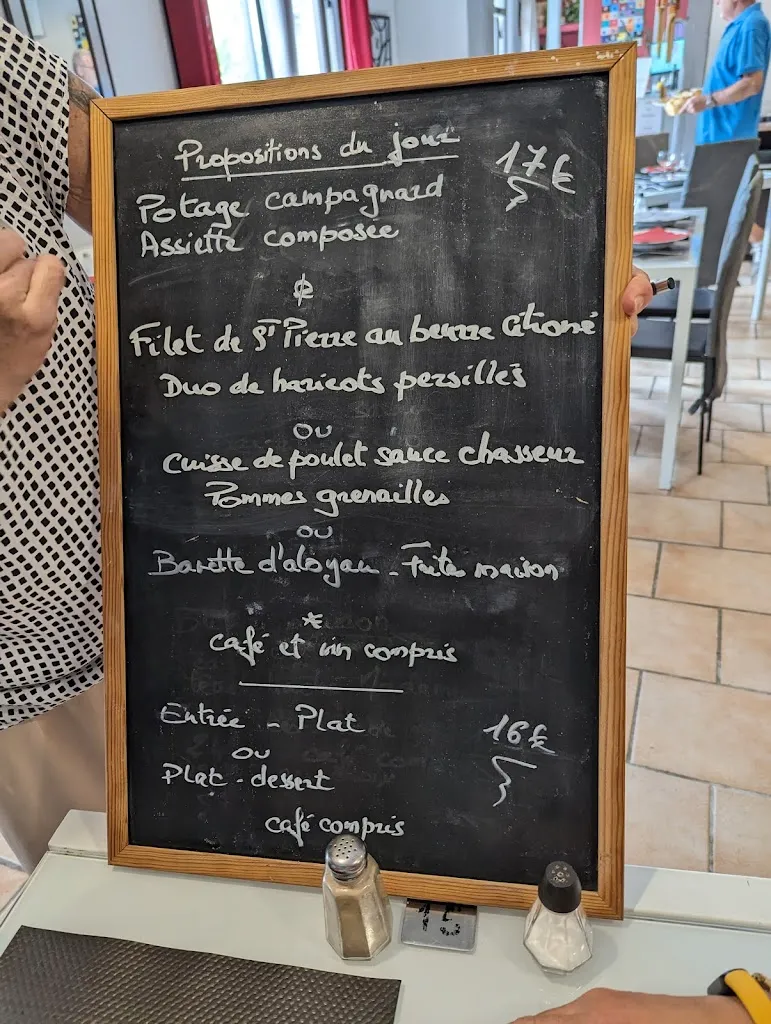 Propositions du jour
17€
Potage campagnard
Assiette composée
Filet de St Pierre au beurre citronné
Duo de haricots persillés
ou
Cuisse de poulet sauce chasseur
Pommes grenailles
ou
Bavette d'aloyau - Frites maison
*
café et vin compris
Entrée - Plat
16€
ou
Plat - dessert
café compris
15